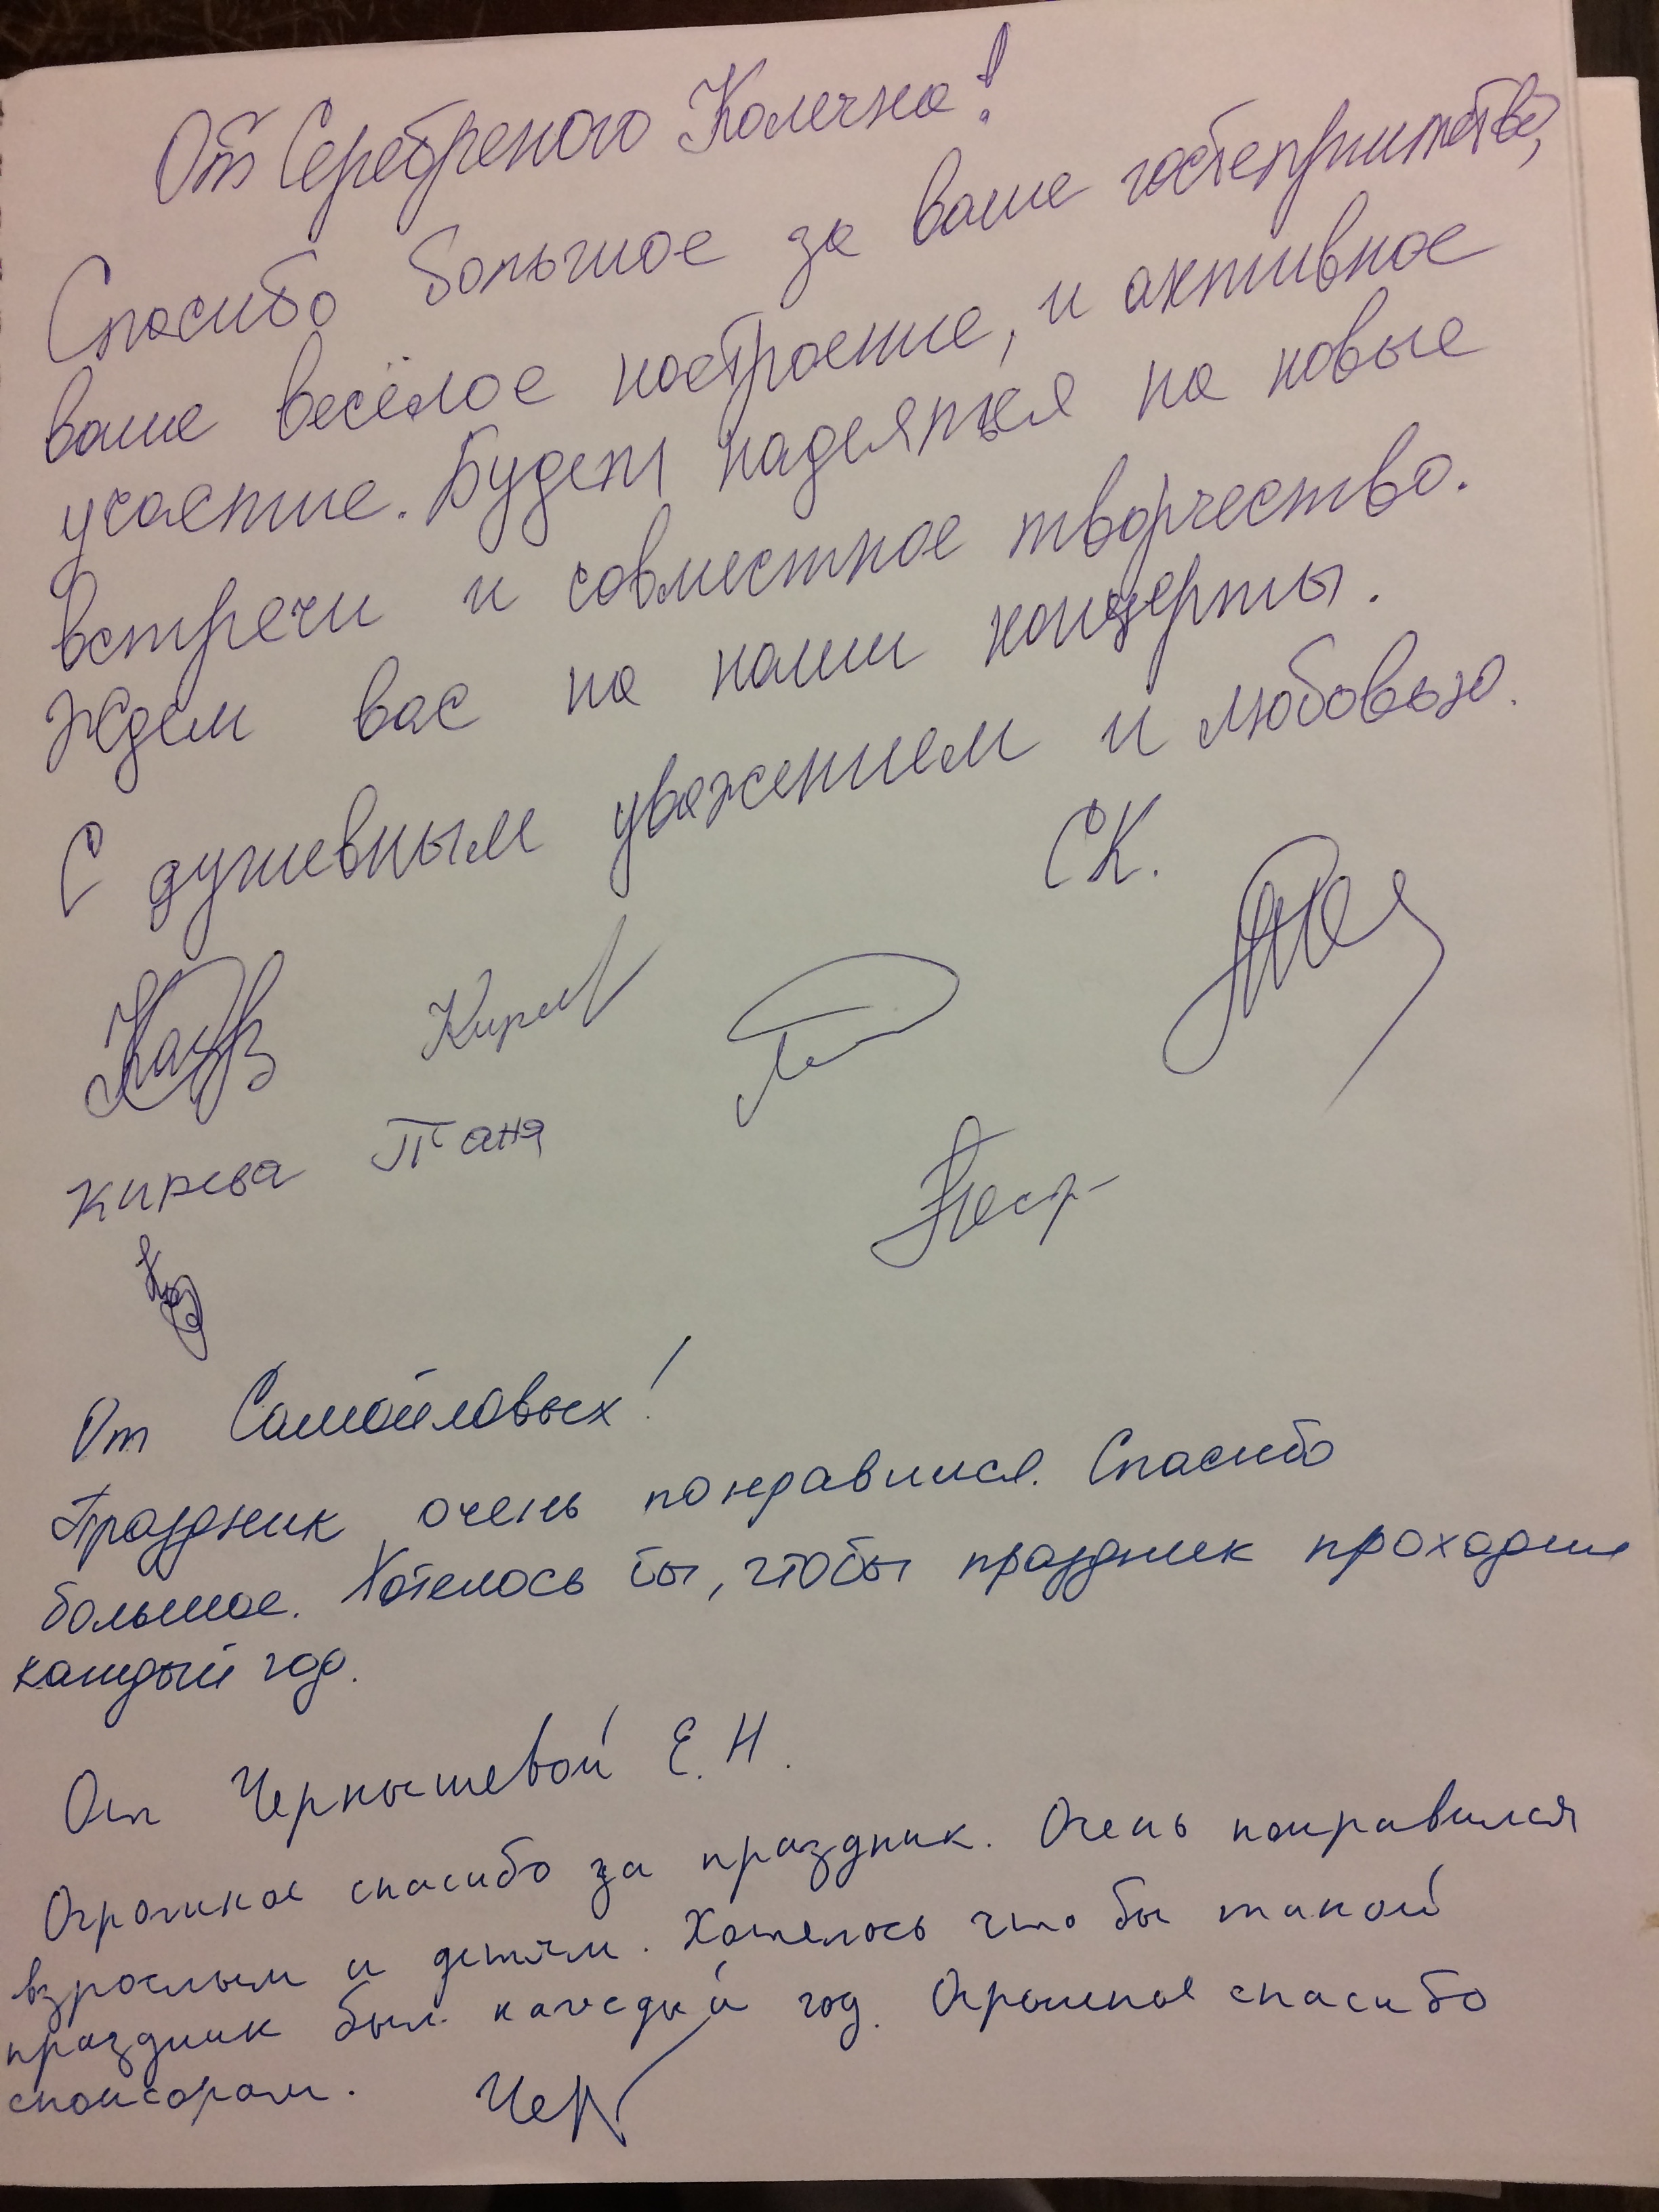 От Серебреного Колечка!
Спасибо большое за ваше гостеприимство,
ваше весёлое настроение, и активное
участие. Будем надеяться на новые
встречи и совместное творчество.
Ждем вас на наши концерты.
С душевным уважением и любовью.
СК.
Кирева Таня
От Самойловых!
Праздник очень понравился. Спасибо
большое. Хотелось бы, чтобы праздник проходил
каждый год.
От Чернышевой Е.Н.
Огромное спасибо за праздник. Очень понравился
взрослым и детям. Хотелось что бы такой
праздник был каждый год. Огромное спасибо
спонсорам. Чер